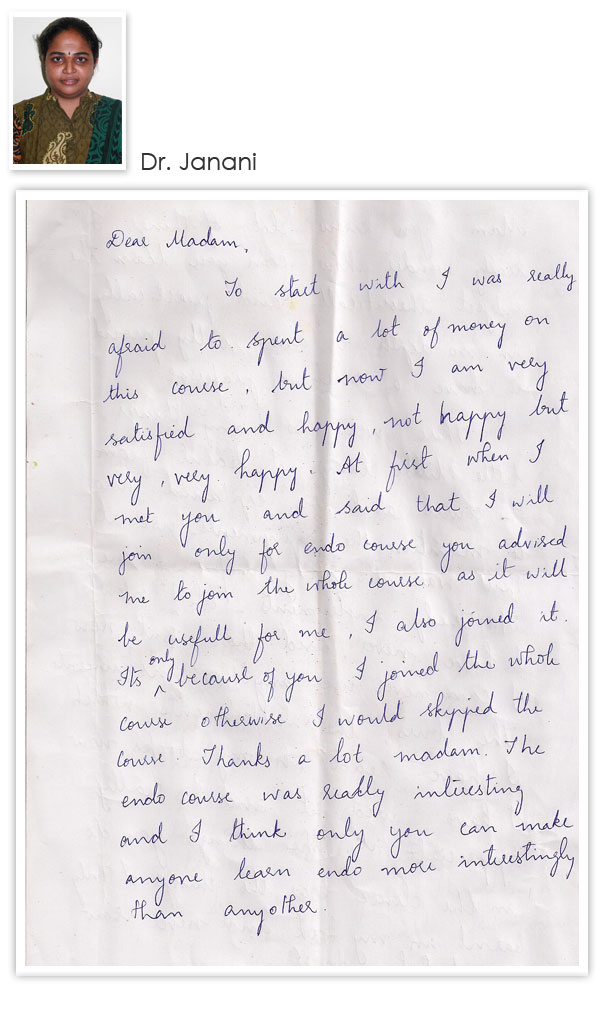 Dr. Janani
Dear Madam,
To start with I was really
afraid to spent a lot of money on
this course, but now I am very
satisfied and happy, not happy but
very, very happy. At first when I
met you and said that I will
join only for endo course you advised
me to join the whole course as it will
be usefull for me, I also joined it.
Its only because of you I joined the whole
course otherwise I would skypped the
course. Thanks a lot madam. The
endo course was really interesting
and I think only you can make
anyone learn endo more interestingly
than anyother.